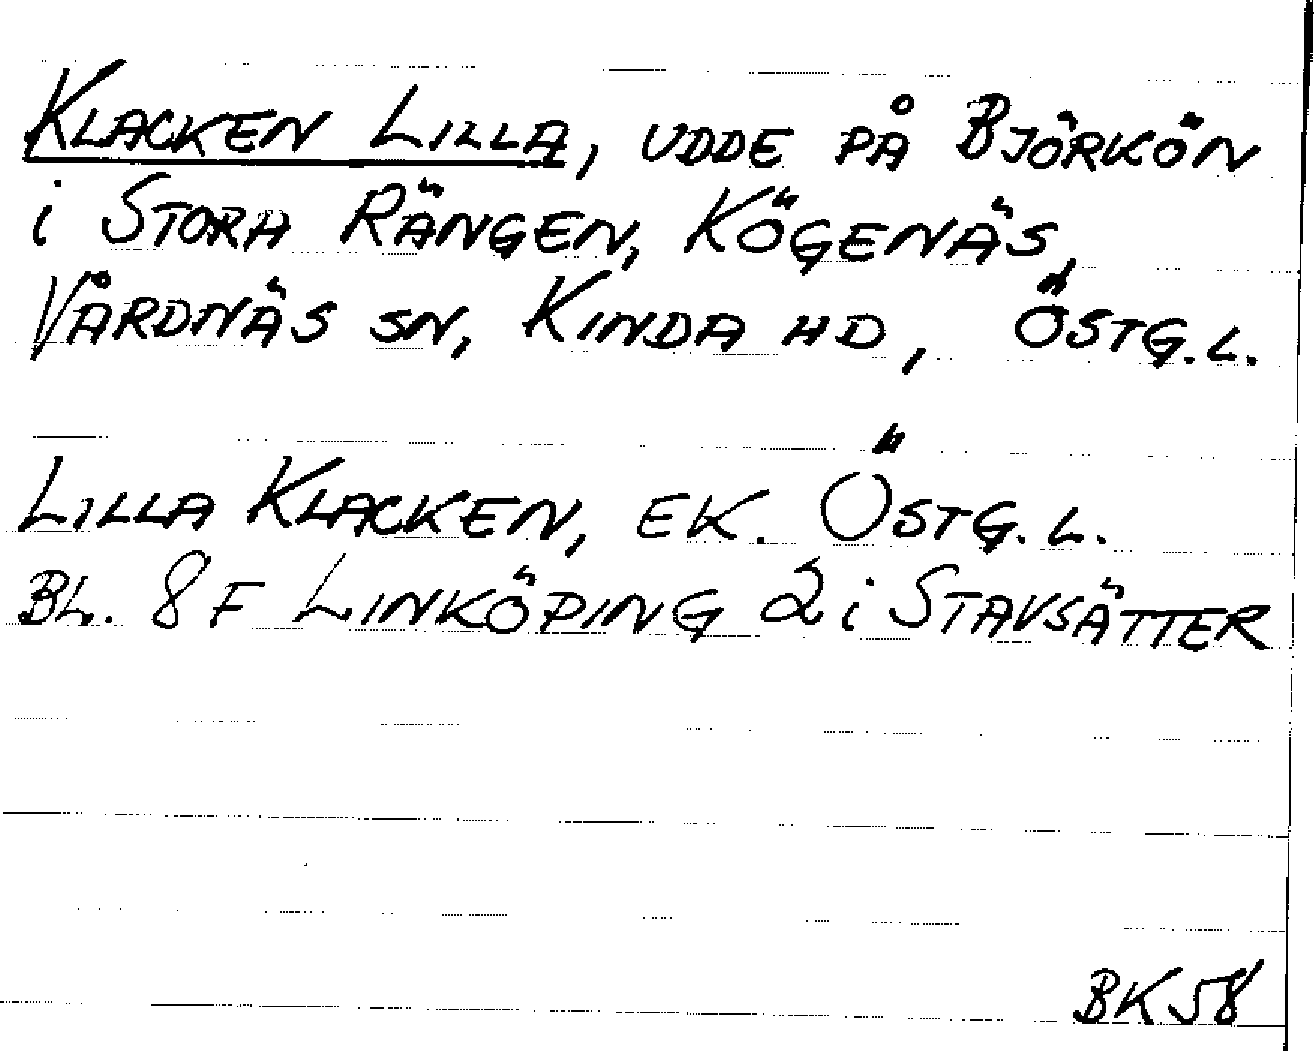 KLACKEN LILLA, UDDE PÅ BJÖRKÖN
i STORA RÄNGEN, KÖGENÄS,
VÅRDNÄS SN, KINDA HD, ÖSTG.L.
LILLA KLACKEN, EK. ÖSTG.L.
BL. 8 F LINKÖPING 2 i STAVSÄTTER
BK58